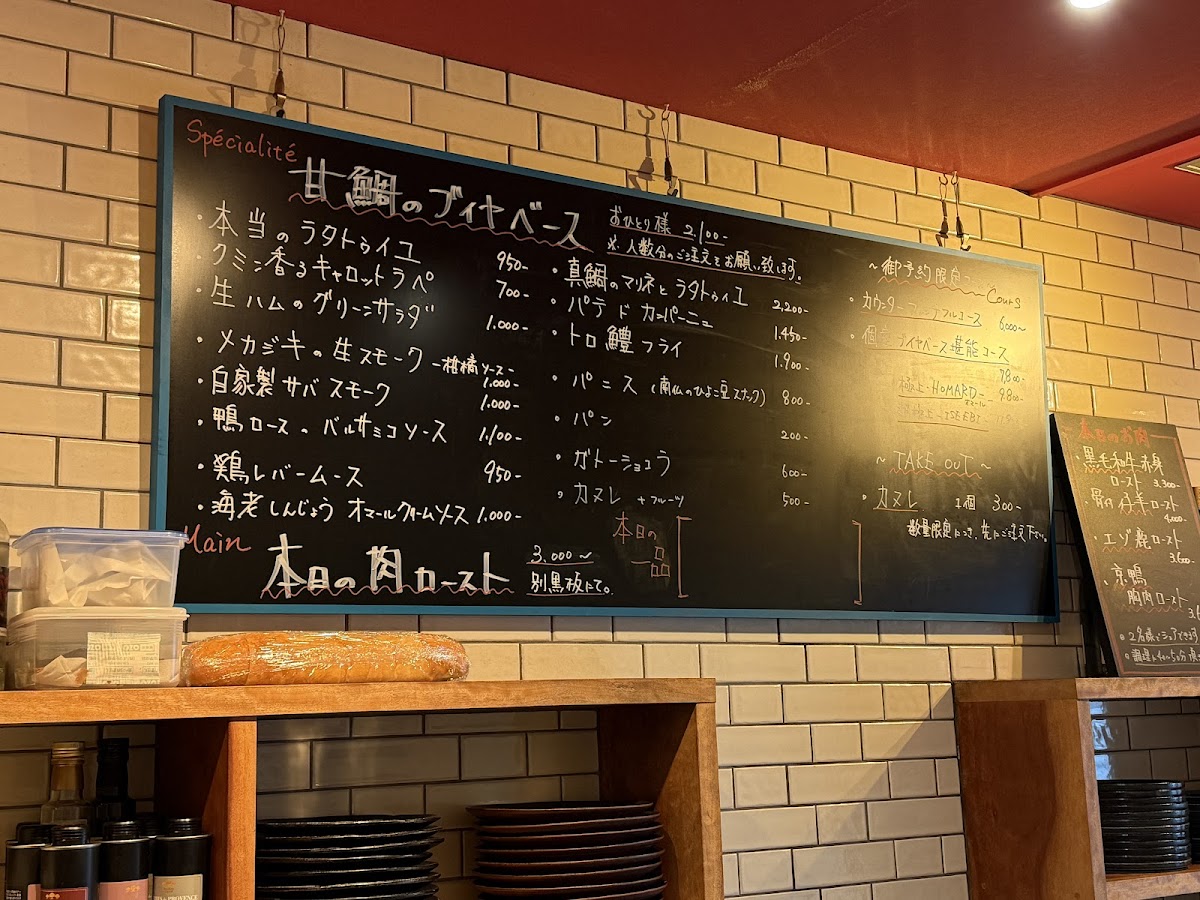 Spécialité
甘鯛のブイヤベース
おひとり様 2,100-
※人数分のご注文をお願い致します。
・本当のラタトゥイユ 950-
・クミン香るキャロットラペ 700-
・生ハムのグリーンサラダ 1.000-
・メカジキの生スモーク -柑橘ソース- 1.000-
・自家製サバスモーク 1.000-
・鴨ロースのバルサミコソース 1.100-
・鶏レバームース 950-
・海老しんじょう オマールクリームソース 1.000-
・真鯛のマリネとラタトゥイユ 2,200-
・パテ ド カンパーニュ 1.450-
・トロ鰹フライ 1.900-
・パニス (南仏のひよこ豆スナック) 800-
・パン 200-
・ガトーショコラ 600-
・カヌレ +フルーツ 500-
本日の一品
Main
本日の肉ロースト
3.000〜
別黒板にて。
〜御予約限定〜
Cours
・カウンター フルコース 6,000〜
ブイヤベース堪能コース
7.800-
極上・HOMARD- 9.800-
オマール
〜TAKE OUT〜
・カヌレ 1個 300-
数量限定につき、先にご注文下さい。
本日のお肉
・黒毛和牛赤身
ロースト 3.300-
・骨付仔羊ロースト
4,000-
・エゾ鹿ロースト
3.600-
・京鴨
胸肉ロースト
※2名様でシェアできます
PROVENCE